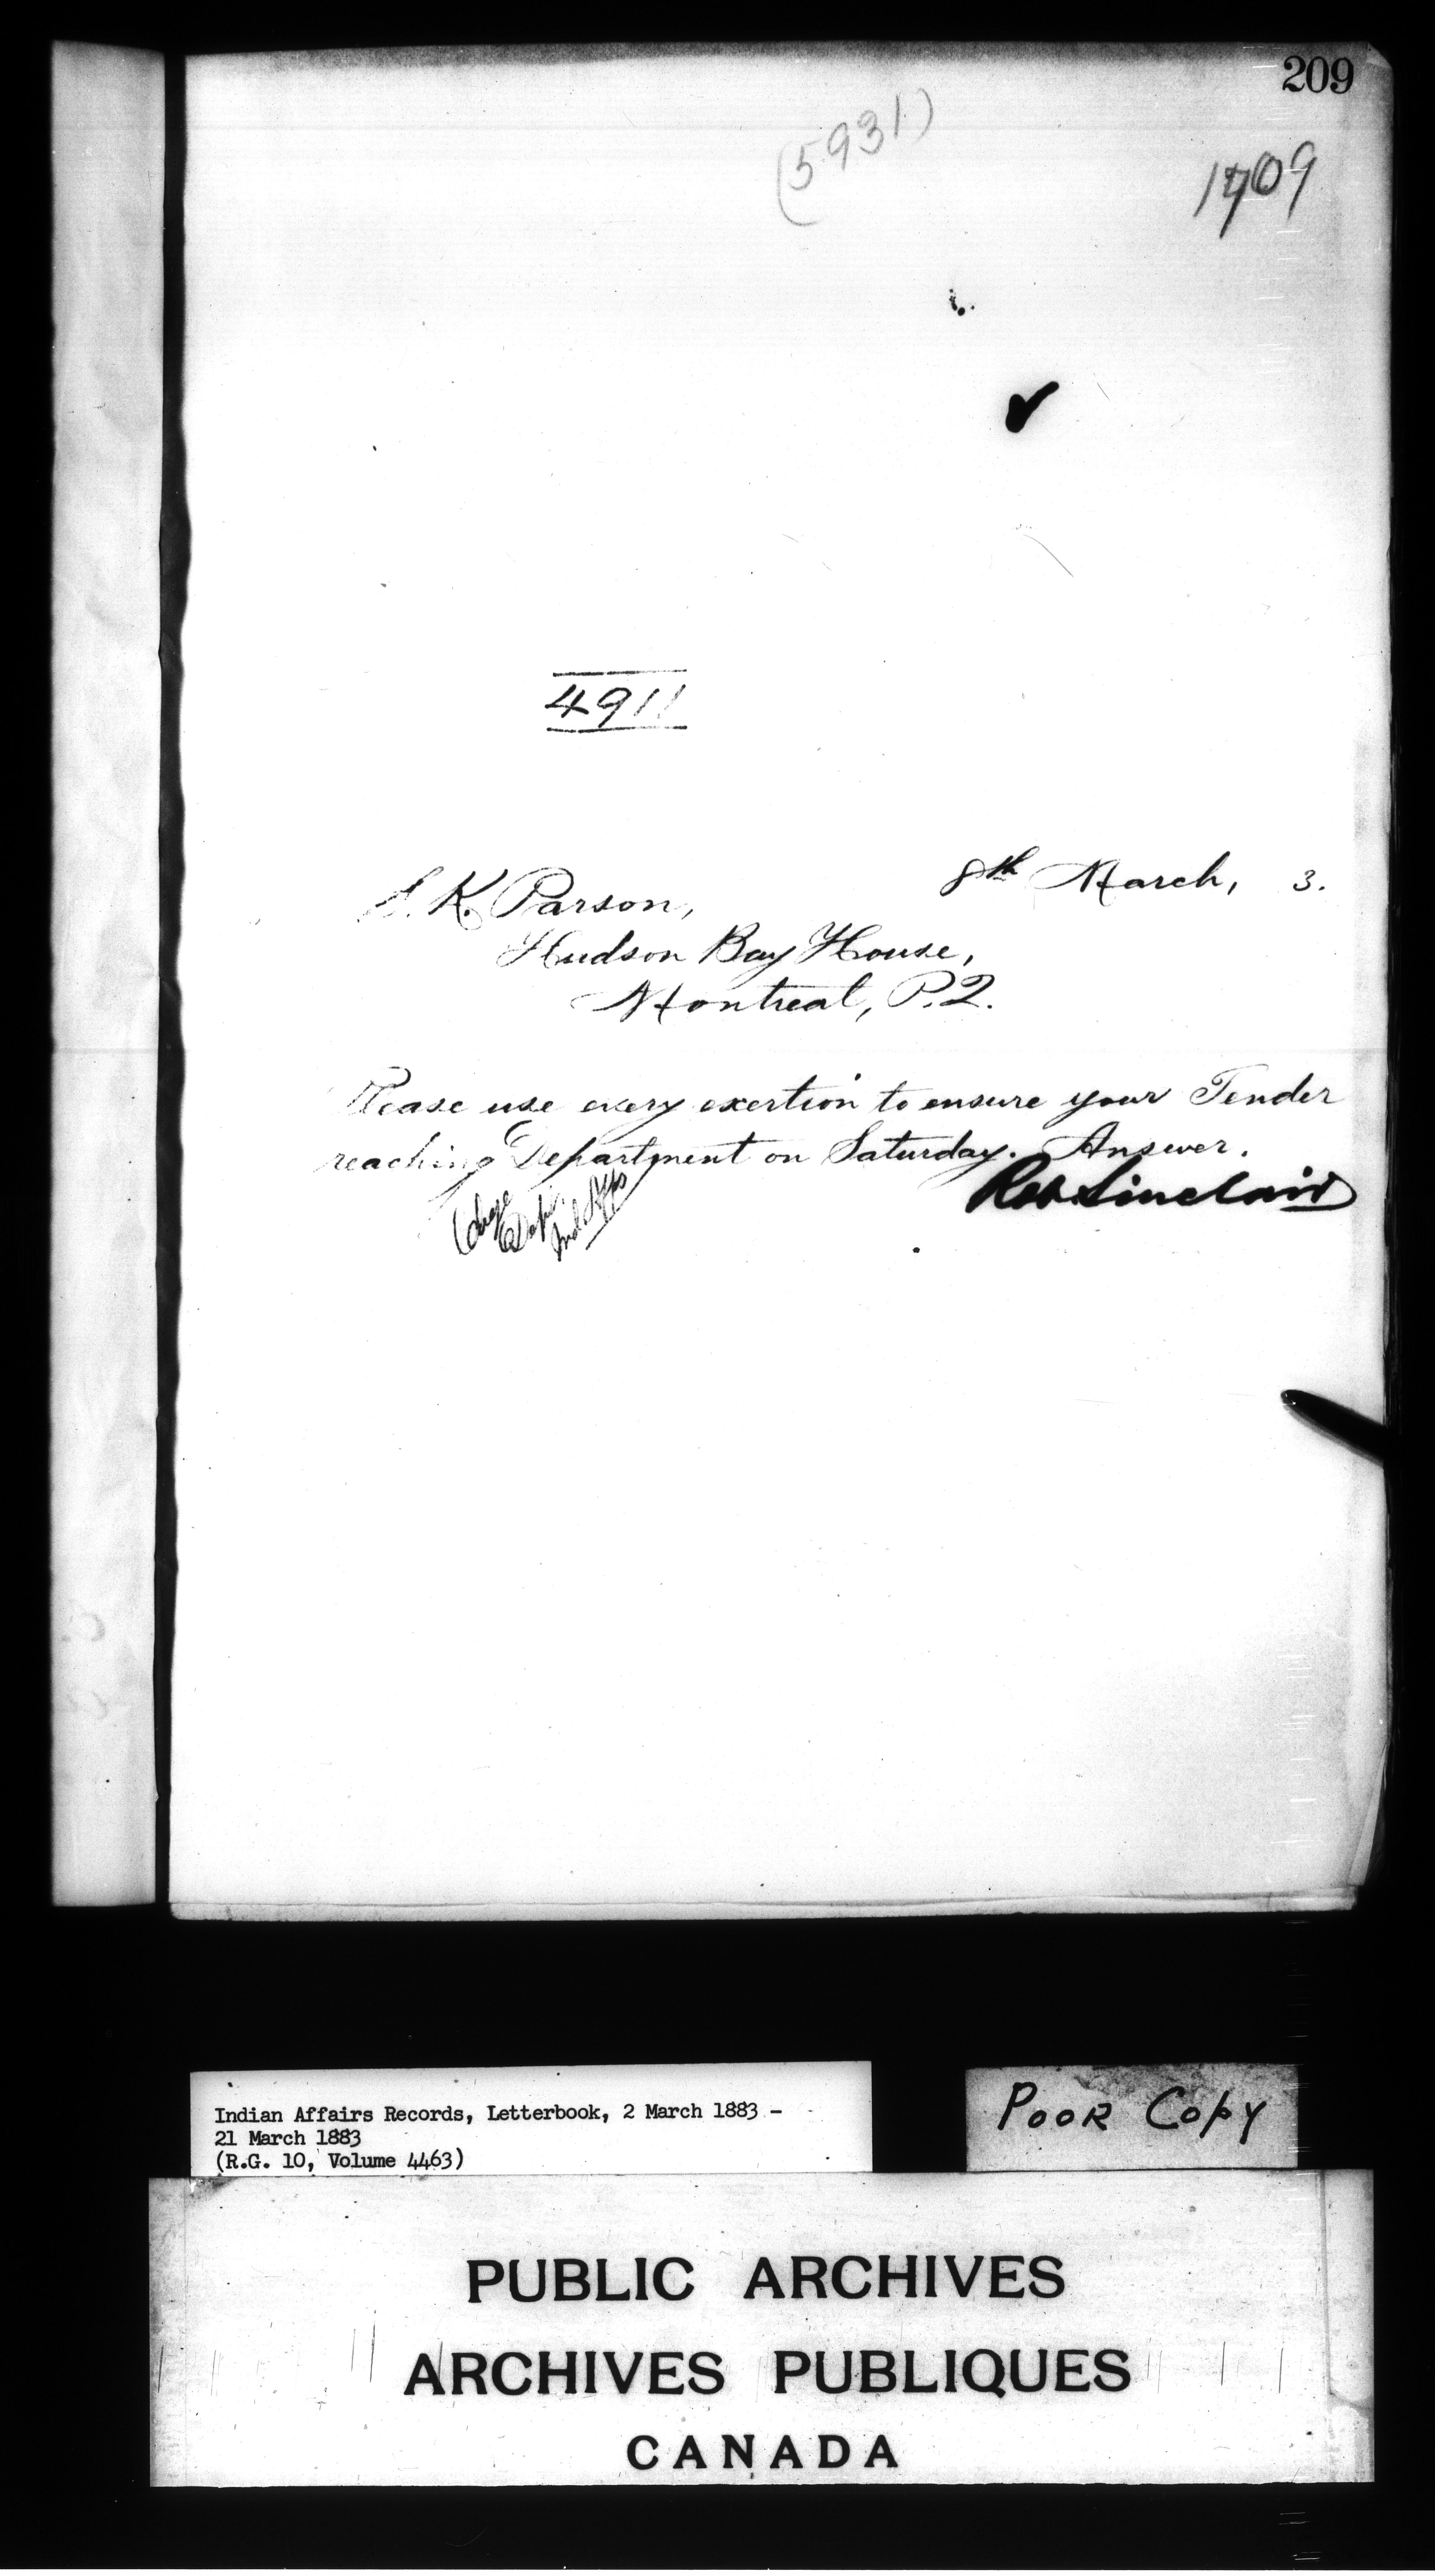 209
(5931)
1709
4911
8th March, 3.
S. K. Parson,
Hudson Bay House,
Montreal, P.Q.
Please use every exertion to ensure your Tender
reaching Department on Saturday. Answer.
Robt. Sinclair
Charge
Dept.
Ind. Affs
Indian Affairs Records, Letterbook, 2 March 1883 -
21 March 1883
(R.G. 10, Volume 4463)
POOR COPY
PUBLIC ARCHIVES
ARCHIVES PUBLIQUES
CANADA